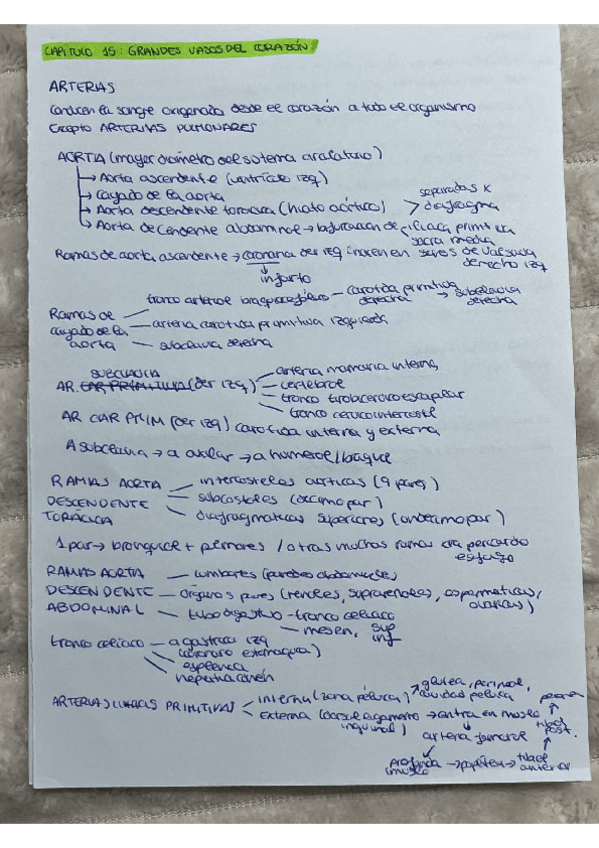 CAPITULO 15: GRANDES VASOS DEL CORAZÓN
ARTERIAS
Conducen la sangre oxigenada desde el corazón a todo el organismo
Excepto ARTERIAS PULMONARES
AORTIA (mayor diametro del sistema circulatorio)
→ Aorta ascendente (ventriculo izq)
→ Cayado de la aorta
→ Aorta descendente toracica (hiato aórtico) > separadas x diafragma
→ Aorta descendente abdominal → bifurcación de iliaca primitiva
sacra media
Ramas de aorta ascendente → coronaria der izq (nacen en senos de valsalva
derecho izq
↓
infarto
Ramas de cayado de la aorta
tronco arterial braquiocefálico — carotida primitiva derecha → subclavia derecha
arteria carotida primitiva izquierda
subclavia derecha
SUBCLAVIA
AR. CAR PRIMITIVA (der izq)
arteria mamaria interna
vertebral
tronco tirobicervicoescapular
tronco cervicointercostal
AR CAR PRIM (der izq) carotida interna y externa
A subclavia → a axilar → a humeral/braquial
RAMAS AORTA DESCENDENTE TORÁCICA
intercostales aórticas (9 pares)
subcostales (decimo par)
diafragmaticas superiores (undecimo par)
1 par → bronquial + pulmones / otras muchas ramas xra pericardio
esofago
RAMAS AORTA DESCENDENTE ABDOMINAL
lumbares (paredes abdominales)
órganos pares (renales, suprarrenales, espermaticas,
ovaricas)
tubo digestivo - tronco celiaco
mesen, sup
inf
tronco celiaco — a gastrica izq
(coronaria estomaquica)
esplenica
hepatica común
ARTERIAS ILIACAS PRIMITIVAS
interna (zona pélvica) → glutea, perineal,
cavidad pélvica
externa (dorsal ligamento inguinal) → entra en muslo
↓
arteria femoral
profunda muslo → poplitea → tibial anterior
↑
tibial post.
↑